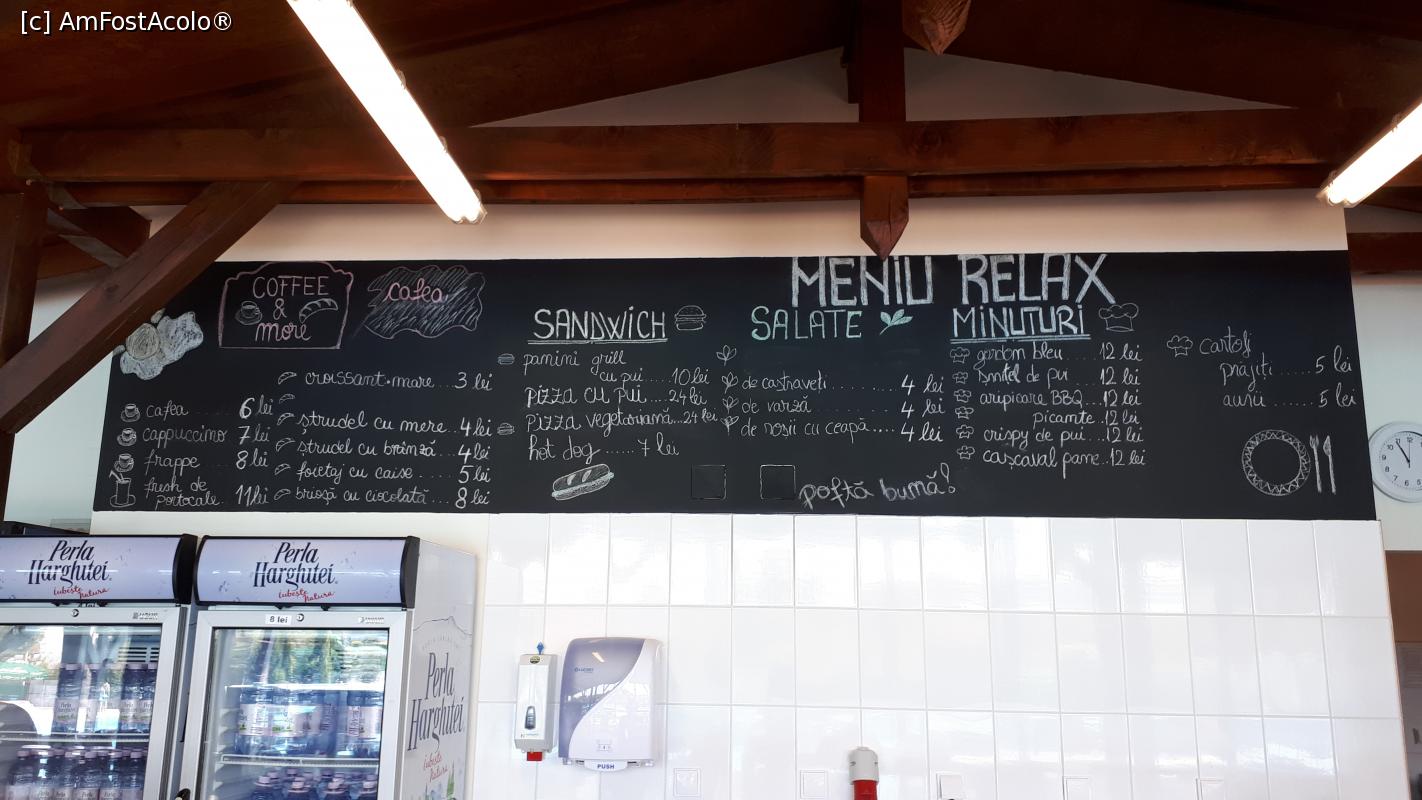 [c] AmFostAcolo®
COFFEE
&
more
cafea
cafea ........ 6 lei
cappuccino 7 lei
frappe ...... 8 lei
fresh de
portocale.. 11 lei
croissant mare.... 3 lei
strudel cu mere..4 lei
strudel cu brânză...4 lei
foietaj cu caise.....5 lei
brioșă cu ciocolată...8 lei
SANDWICH
panini grill
cu pui.....10 lei
pizza cu pui.....24 lei
pizza vegetariană...24 lei
hot dog ...... 7 lei
MENIU RELAX
SALATE
de castraveți ......... 4 lei
de varză ......... 4 lei
de roșii cu ceapă.... 4 lei
poftă bună!
MINUTURI
gordon bleu ..... 12 lei
șnițel de pui ... 12 lei
aripioare BBQ...12 lei
picante..12 lei
crispy de pui...12 lei
cașcaval pane..12 lei
cartofi
prăjiți ...... 5 lei
aurii ....... 5 lei
Perla
Harghitei.
iubește
natura
Perla
Harghitei.
iubește
natura
8 lei
Perla
Harghitei.
iubește
natura
PUSH